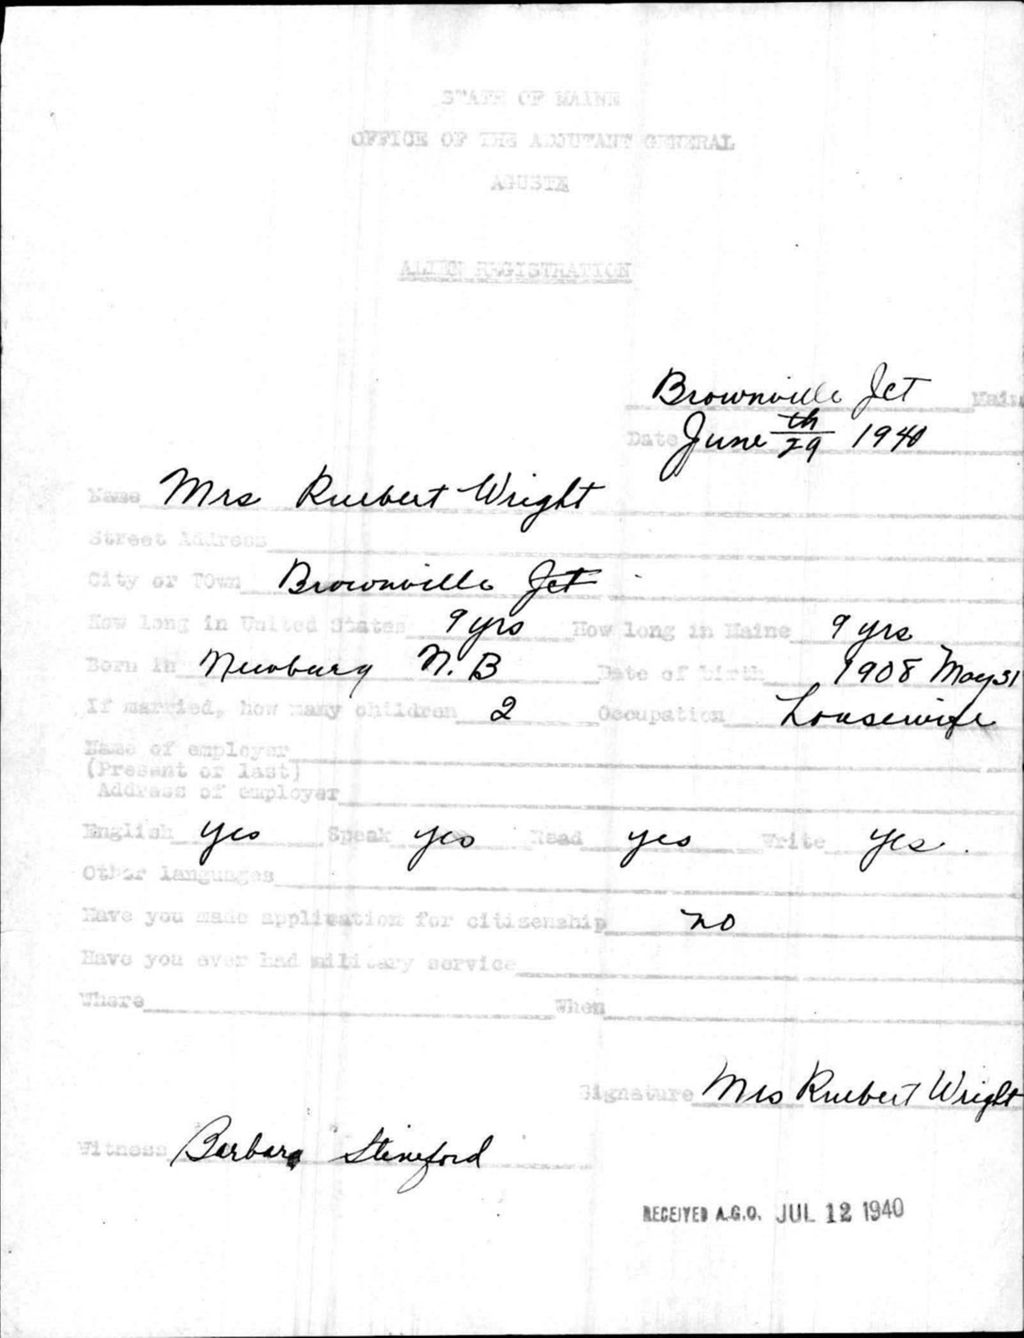 STATE OF MAINE
OFFICE OF THE ADJUTANT GENERAL
AGUSTA
ALIEN REGISTRATION
Brownville Jct Maine
Date June 29th 1940
Name Mrs Ruebert Wright
Street Address
City or TOwn Brownville Jct
How long in United States 9 yrs How long in Maine 9 yrs
Born in Newburg N.B Date of birth 1908 May 31
If married, how many children 2 Occupation housewife
Name of employer
(Present or last)
Address of employer
English yes Speak yes Read yes Write yes.
Other languages
Have you made application for citizenship no
Have you ever had military service
Where When
Signature Mrs Ruebert Wright
Witness Barbara Steneford
RECEIVED A.G.O. JUL 12 1940